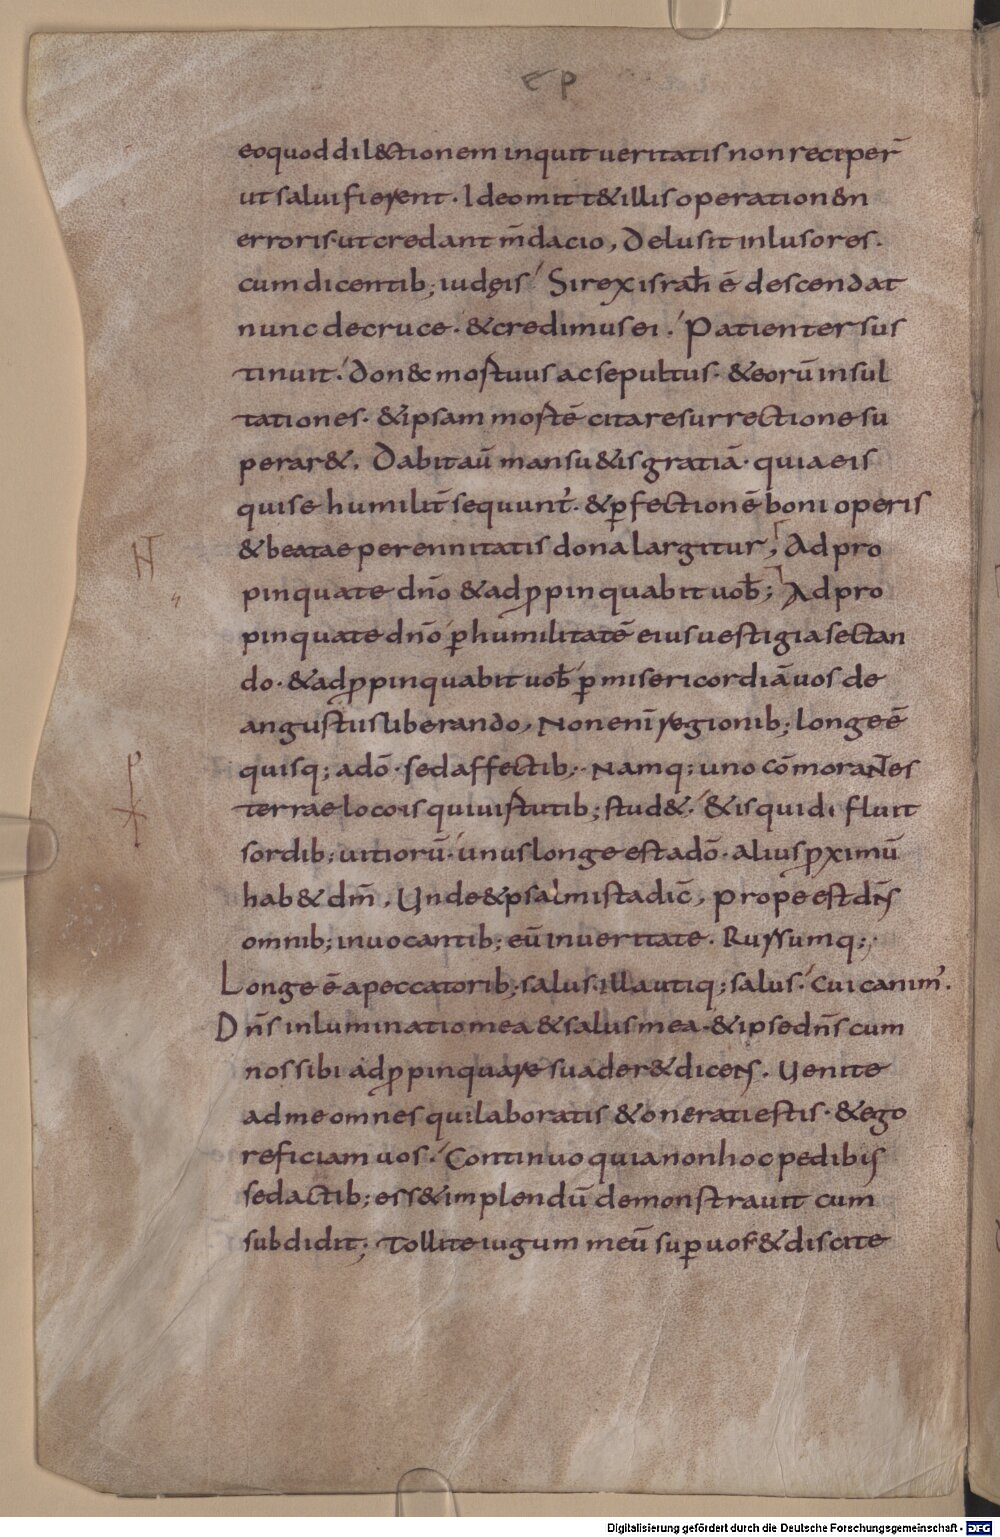 EP
eo quod dil&ctionem inquit ueritatis non reciper̄
ut salui fierent. Ideo mittt& illis operation&n
erroris. ut credant m̄dacio, Delusit inlusores.
cum dicentib; iudęis Si rex israħ ē descendat
nunc de cruce. & credimus ei. Patienter sus
tinuit. don&c mortuus ac sepultus. & eorū insul
tationes. & ipsam mortē cita resurrectione su
perar&. Dabit aū mansu&is gratiā. quia eis
qui se humilit̄ sequunt᷑. & ꝑfectionē boni operis
& beatae perennitatis dona largitur; Adpro
pinquate dn̄o & adꝓpinquabit uob̄; Adpro
pinquate dn̄o ꝑ humilitatē eius uestigia sectan
do. & adꝓpinquabit uob̄ ꝑ misericordiā uos de
angustiis liberando, Non enī regionib; longe ē
quisq; a dō. sed affectib;. Namq; uno cōmorantes
terrae loco is qui uirtutib; stud&. & is qui difluit
sordib; uitiorū. unus longe est a dō. alius ꝓximū
hab& dm̄, Unde & psalmista dic̄, Prope est dn̄s
omnib; inuocantib; eū in ueritate. Rursumq;,
Longe ē a peccatorib; salus. illa utiq; salus. Cui canim᷑.
Dn̄s inluminatio mea & salus mea. & ipse dn̄s cum
nos sibi adꝓpinquare suader& dicens. Uenite
ad me omnes qui laboratis & onerati estis. & ego
reficiam uos. Continuo quia non hoc pedibis
sed actib; ess& implendū demonstrauit cum
subdidit; Tollite iugum meū suꝑ uos & discite
N
Digitalisierung gefördert durch die Deutsche Forschungsgemeinschaft - DFG